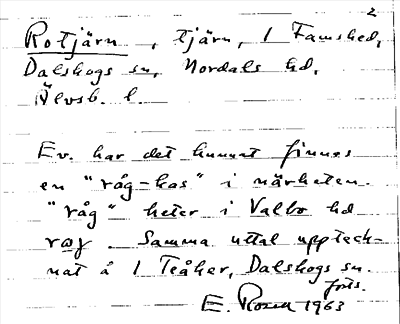 2
Rotjärn, tjärn, 1 Famshed,
Dalskogs sn, Nordals hd,
Älvsb. l.
Ev. har det kunnat finnas
en "råg-has" i närheten.
"råg" heter i Valbo hd
rɷg. Samma uttal uppteck-
nat å 1 Teåker, Dalskogs sn.
forts.
E. Rosén 1963